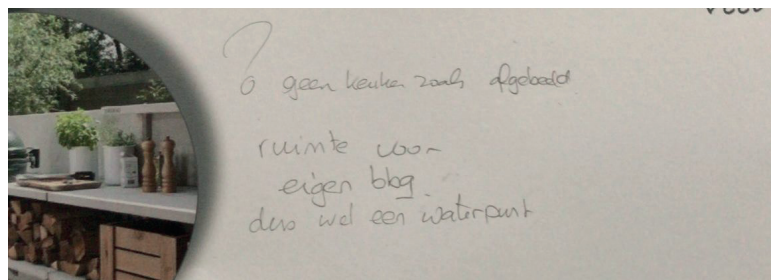 ?
geen keuken zoals afgebeeld
ruimte voor
eigen bbq
dus wel een waterpunt